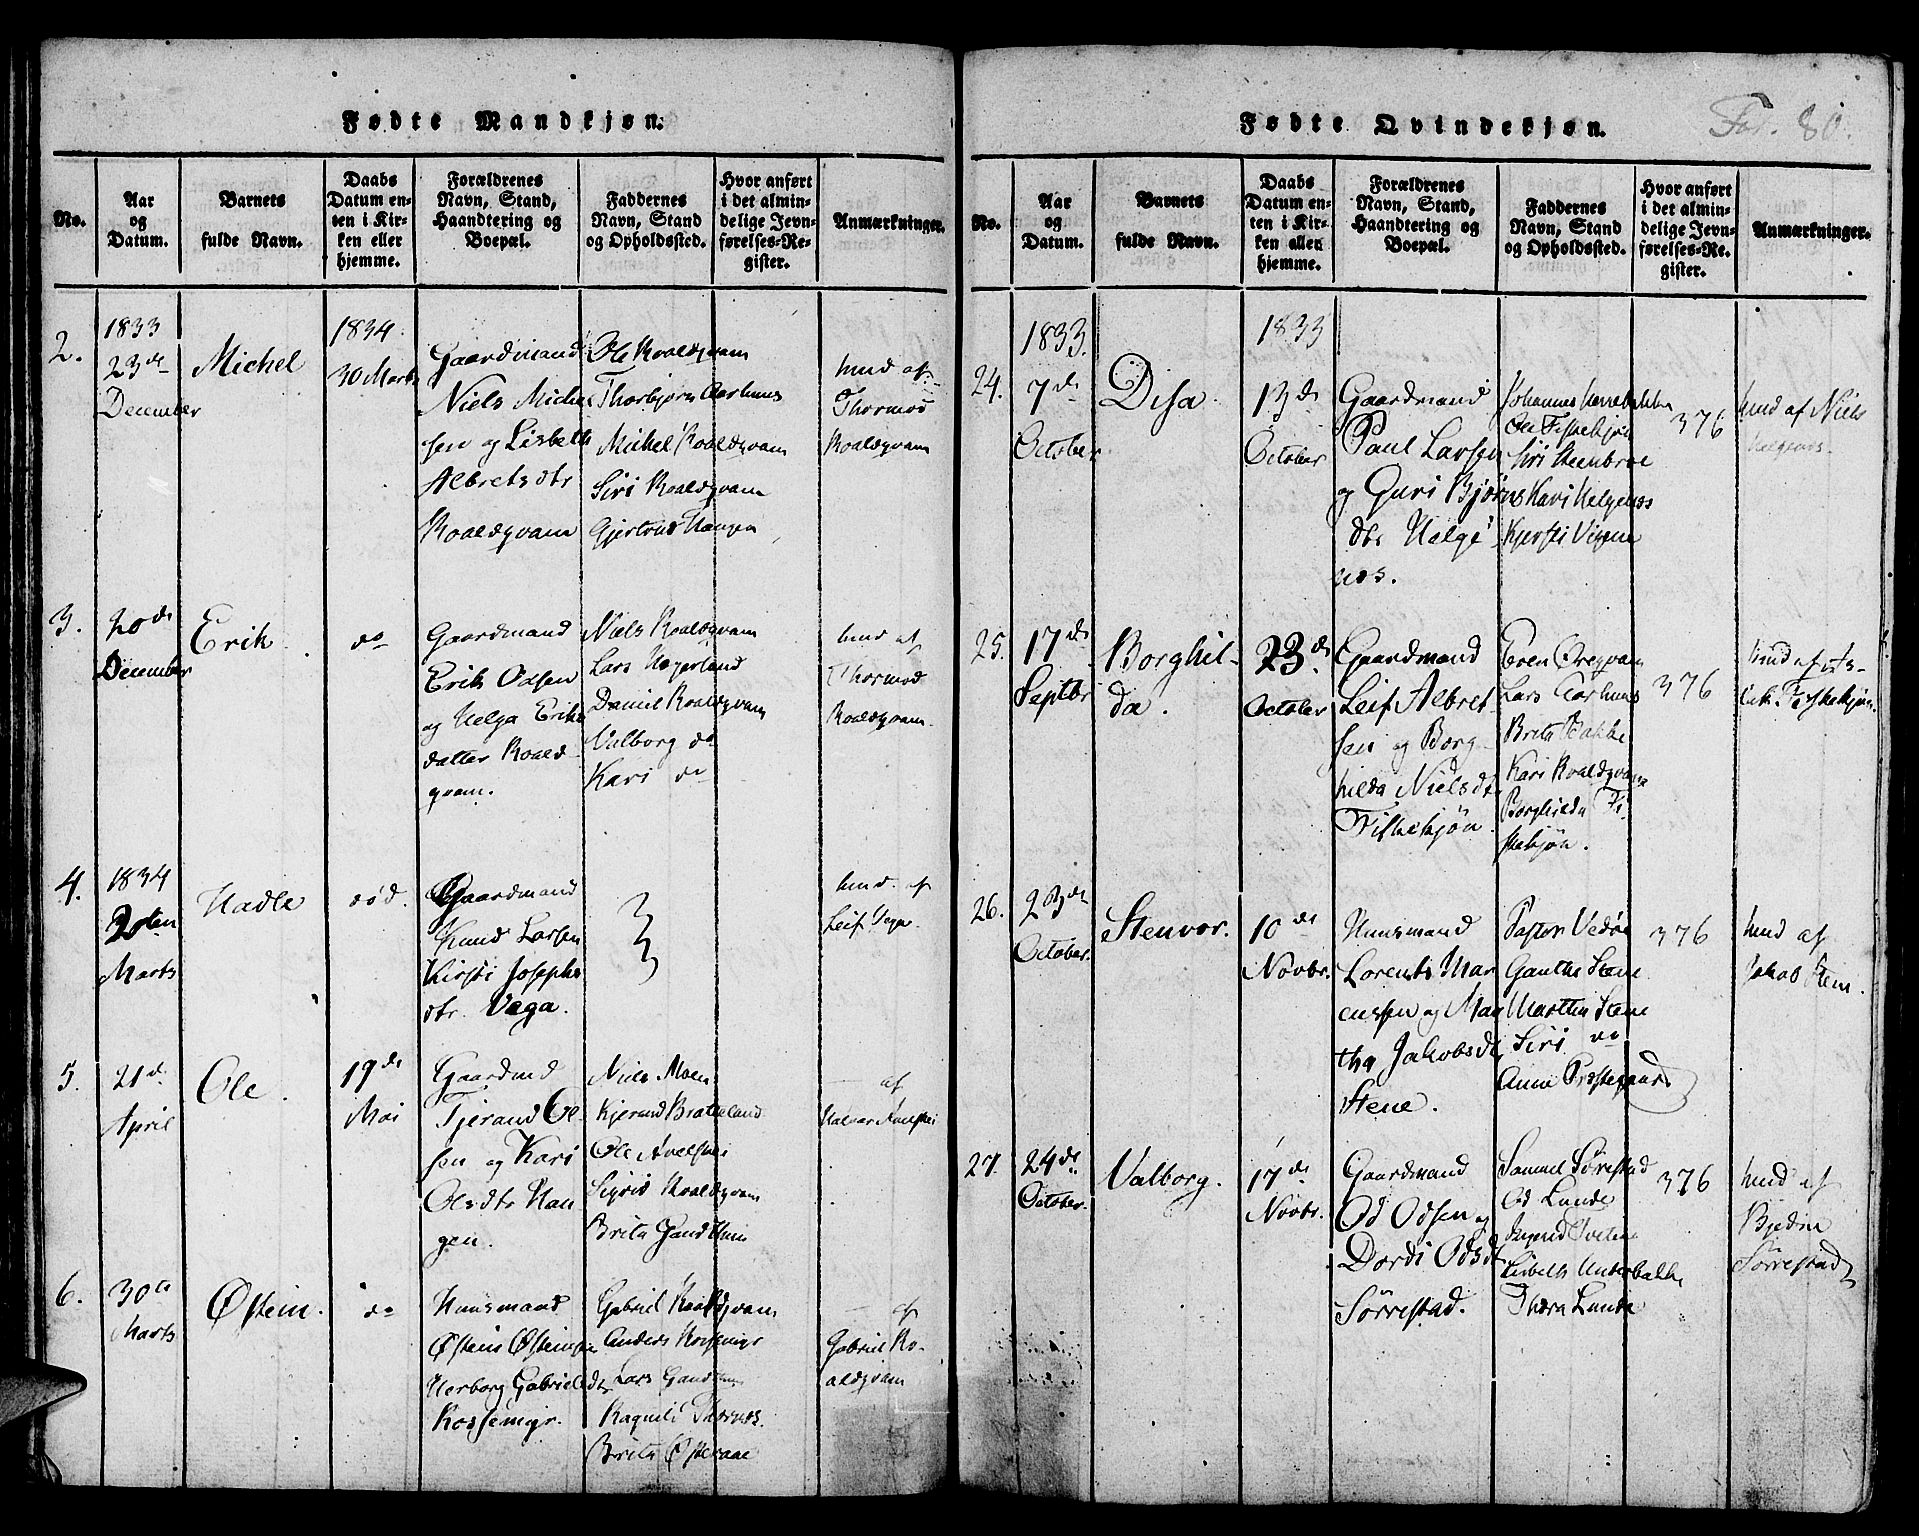 Fødte Mandkjøn.
No.
Aar
og
Datum.
Barnets
fulde Navn.
Daabs
Datum en-
ten i Kir-
ken eller
hjemme.
Forældrenes
Navn, Stand,
Haandtering og
Boepæl.
Faddernes
Navn, Stand
og Opholdssted.
Hvor anført
i det almin-
delige Jevn-
førelses-Re-
gister.
Anmærkninger.
2.
1833
23de
December
Michel
1834.
30 Marts
Gaardmand
Niels Michel
sen og Lisbeth
Albretsdtr
Roaldqvam
Ole Roaldqvam
Thorbjørn Aarhuus
Michel Roaldqvam
Siri Roaldqvam
Gjertrud Haugen
hmd af
Thormod
Roaldqvam
3.
20de
December
Erik
do
Gaardmand
Erik Odsen
og Helga Eriks
datter Roald-
qvam.
Niels Roaldqvam
Lars
Daniel Roaldqvam
Valborg do
Kari do
hmd af
Thormod
Roaldqvam.
4.
1834
20ten
Marts
Hadle
død.
Gaardmand
Knud Larsen
Kirsti Josephs
dtr. Væga.
hmd. af
Leif Vega
5.
21de
April
Ole.
19de
Mai
Gaardmd
Tjerand Ol-
sen og Kari
Olsdtr Hau
gen.
Niels Moen
Kjerand Bratteland
Ole
Sigrid Roaldqvam
Brita
— af
Halvor
6.
30te
Marts
Østein.
do
Huusmand
Østein Østeinsen
Herborg Gabrielsdtr
Gabriel Roaldqvam
Anders
Lars
Brita
— af
Gabriel Ro-
aldqvam
Fødte Qvindekjøn.
Fol. 80.
No.
Aar
og
Datum.
Barnets
fulde Navn.
Daabs
Datum en-
ten i Kir-
ken eller
hjemme.
Forældrenes
Navn, Stand,
Haandtering og
Boepæl.
Faddernes
Navn, Stand
og Opholdssted.
Hvor anført
i det almin-
delige Jevn-
førelses-Re-
gister.
Anmærkninger.
24.
1833.
7de
October
Disa
1833
13de
October
Gaardmand
Paul Larsen
og Guri Bjørns
dtr Helge
næs.
Johannes
Ole Fiskekjøn
Siri Steenbroe
Kari Helgenæs
Kjersti
376
hmd af Niels
Helgenæs.
25.
17de
Septbr
Borghil-
da.
23de
October
Gaardmand
Leif Albret-
sen og Borg-
hilda Nielsdtr
Fiskekjøn.
Even
Lars Aarhuus
Brita Bakke
Kari Roaldqvam
Borghilda Fi-
skekjøn.
376
hmd af
Fiskekjøn.
26.
23de
October.
Stenvor.
10de
Novbr.
Huusmand
Lorents Mar
cussen og Mar
tha Jakobsdtr
Stene.
Pastor
Stene
Marthin Stene
Siri do
Anna Præstegaard
376
hmd af
Jakob Stene.
27.
24de
October.
Valborg.
17de
Novbr.
Gaardmand
Od Odsen og
Dordi Odsdtr
Sørrestad.
Samuel Sørestad
Od Lunde
Lisbeth Underbakke
Thora Lunde
376
hmd af
Sørrestad